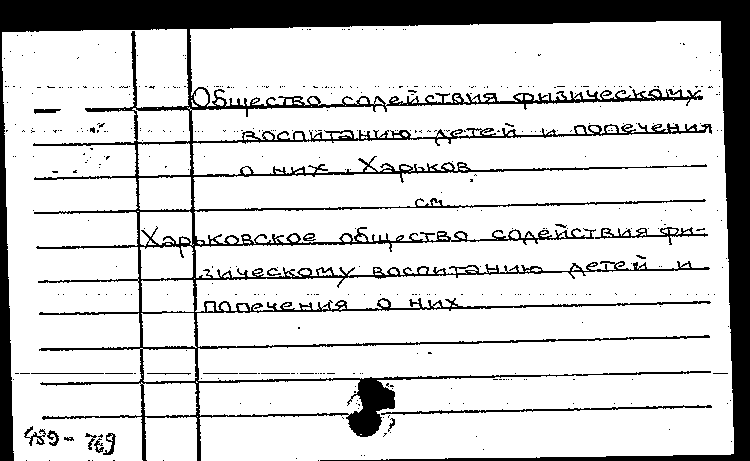 Общество содействия физическому
воспитанию детей и попечения
о них. Харьков
см.
Харьковское общество содействия фи-
зическому воспитанию детей и
попечения о них
489 - 769